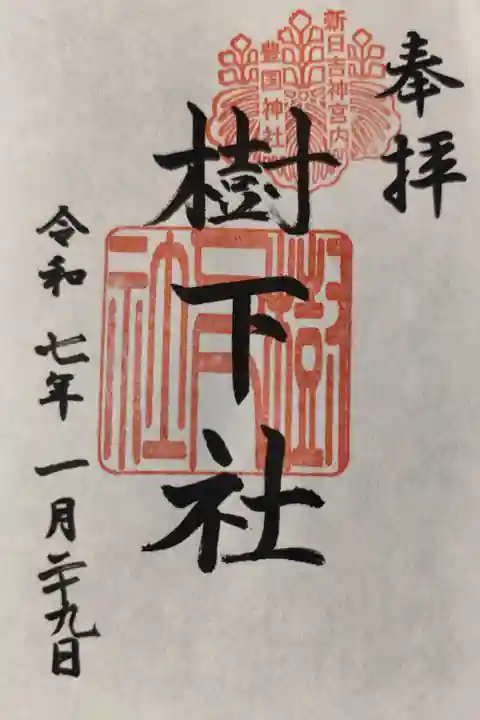 奉拝
新日吉神宮内
豊国神社
樹下社
樹下社
令和七年一月二十九日